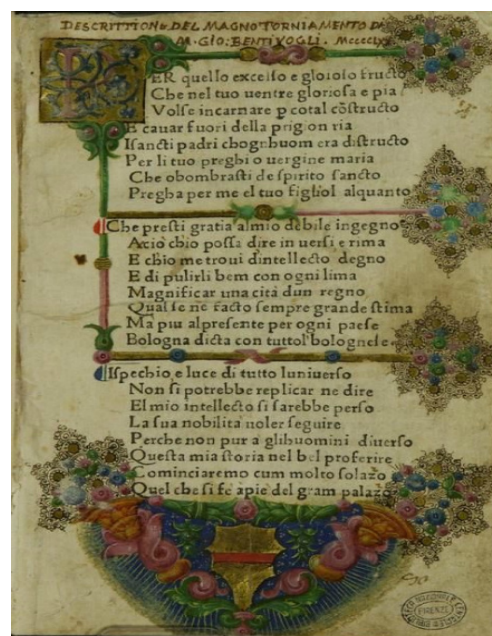 DESCRITTION DEL MAGNO TORNIAMENTO D
M. GIO: BENTIVOGLI. MCCCCLXX
PER quello excelso e glorioso fructo
Che nel tuo uentre gloriosa e pia
Volse incarnare p cotal cõstructo
E cauar fuori della prigion ria
Isancti padri chognhuom era distructo
Per li tuo preghi o uergine maria
Che obombrasti de spirito sancto
Pregha per me el tuo figliol alquanto
Che presti gratia al mio debile ingegno
Acio chio possa dire in uersi e rima
E chio me troui dintellecto degno
E di pulirli bem con ogni lima
Magnificar una cità dun regno
Qual se ne facto sempre grande stima
Ma piu al presente per ogni paese
Bologna dicta con tuttol bolognese
Ispechio e luce di tutto luniuerso
Non si potrebbe replicar ne dire
El mio intellecto si sarebbe perso
La sua nobilita uoler seguire
Perche non pur a glihuomini diuerso
Questa mia storia nel bel proferire
Cominciaremo cum molto solazo
Quel che si fe apie del gram palazo
FIRENZE